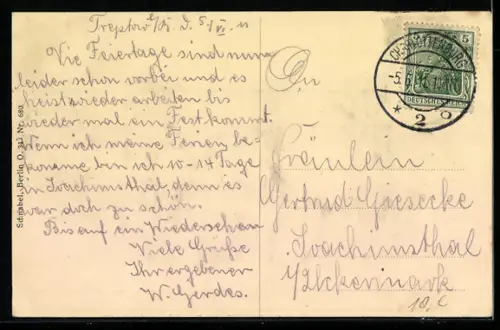 Treptow d. 5/VI. 11
Die Feiertage sind nun
leider schon vorbei und es
heist wieder arbeiten bis
wieder mal ein Fest kommt.
Wenn ich meine Ferien be-
komme bin ich 10-14 Tage
in Joachimsthal, denn es
war doch zu schön.
Bis auf ein Wiedersehen
Viele Grüße
Ihr ergebener
W. Gerdes.
An
Fräulein
Gertrud Giesecke
Joachimsthal
Uckermark
10,-
Schnabel, Berlin O. 34? Nr. 680
CHARLOTTENBURG
-5.6.11.
* 2
5
DEUTSCHES REICH